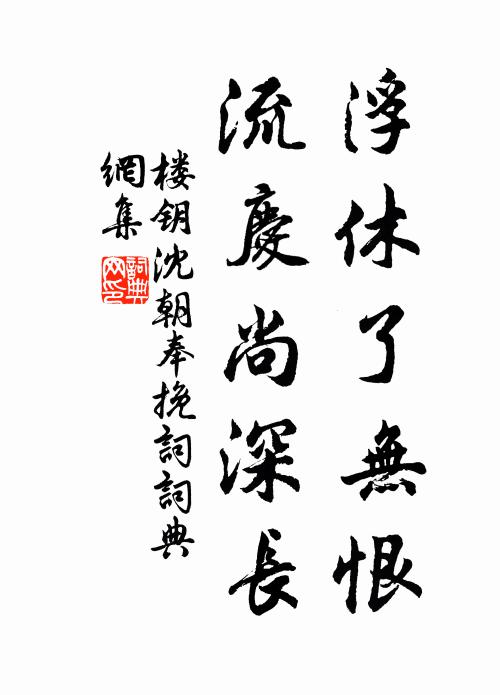 浮休了無恨
流慶尚深長
楼钥沈朝奉挽詞詞典
網集
詞典網印